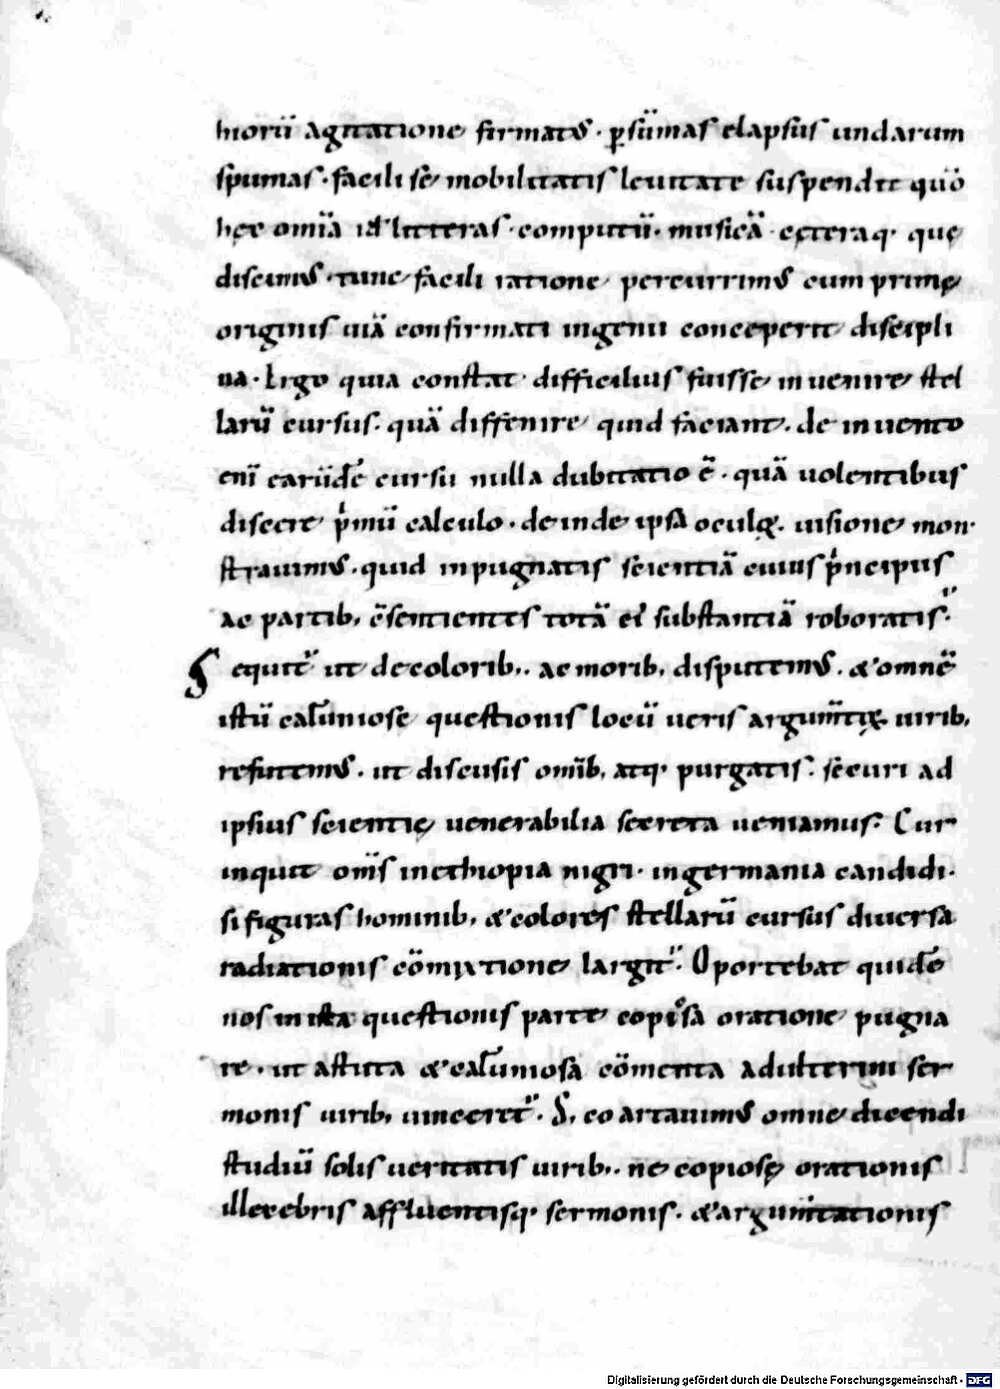 hiorū agitatione firmatus · ꝑ sūmas elapsus undarum
spumas · facili se mobilitatis leuitate suspendit quō
hęc omīa id ÷ litteras · computū · musicā · cęteraq· quę
discimus · tunc facili ratione percurrimus cum primę
originis uiā confirmati ingenii conceperit discipli
na · Ergo quia constat difficilius fuisse inuenire stel
larū cursus · quā diffenire quid faciant · de inuento
enī earūdē cursu nulla dubitatio ē · quā uolentibus
discere pͥmū calculo · deinde ipsa oculoꝝ uisione mon·
strauimus · quid inpugnatis scientiā cuius pͥncipiis
ac partib; ēsentientes totā ei substantiā roboratis ·
Sequit᷑ ut de colorib; · ac morib; disputemus · & omnē
istū calūniose questionis locū ueris argum̄toꝝ uirib;
refutemus · ut discussis omīb; atq· purgatis · securi ad
ipsius scientię uenerabilia secreta ueniamus · Cur
inquit om̄s in ethiopia nigri · in germania candidi ·
si figuras hominib; & colores stellarū cursus diuersa
radiationis cōmixtione largit᷑ · Oportebat quidē
nos in ista questionis parte copiosa oratione pugna
re · ut astuta & calūniosa cōmenta adulterini ser
monis uirib; uinceret᷑ · S; eo artauimus omne dicendi
studiū solis ueritatis uirib; · ne copiosę orationis
illecebris affluentisq· sermonis · & argum̄tationis
Digitalisierung gefördert durch die Deutsche Forschungsgemeinschaft - DFG